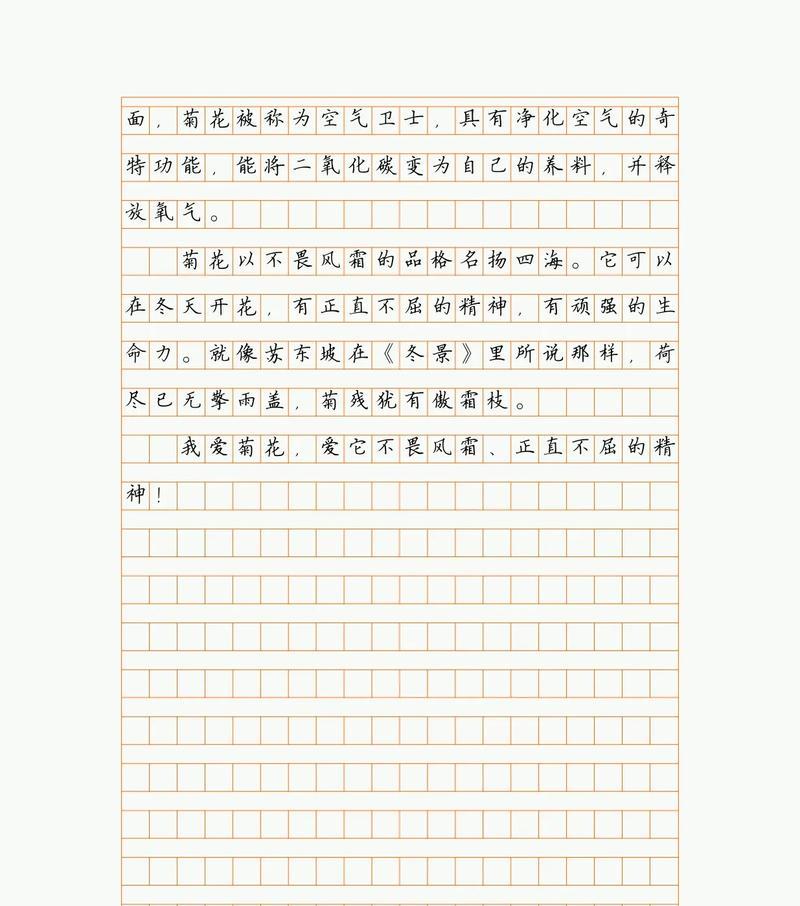 面，菊花被称为空气卫士，具有净化空气的奇
特功能，能将二氧化碳变为自己的养料，并释
放氧气。
菊花以不畏风霜的品格名扬四海。它可以
在冬天开花，有正直不屈的精神，有顽强的生
命力。就像苏东坡在《冬景》里所说那样，荷
尽已无擎雨盖，菊残犹有傲霜枝。
我爱菊花，爱它不畏风霜、正直不屈的精
神！